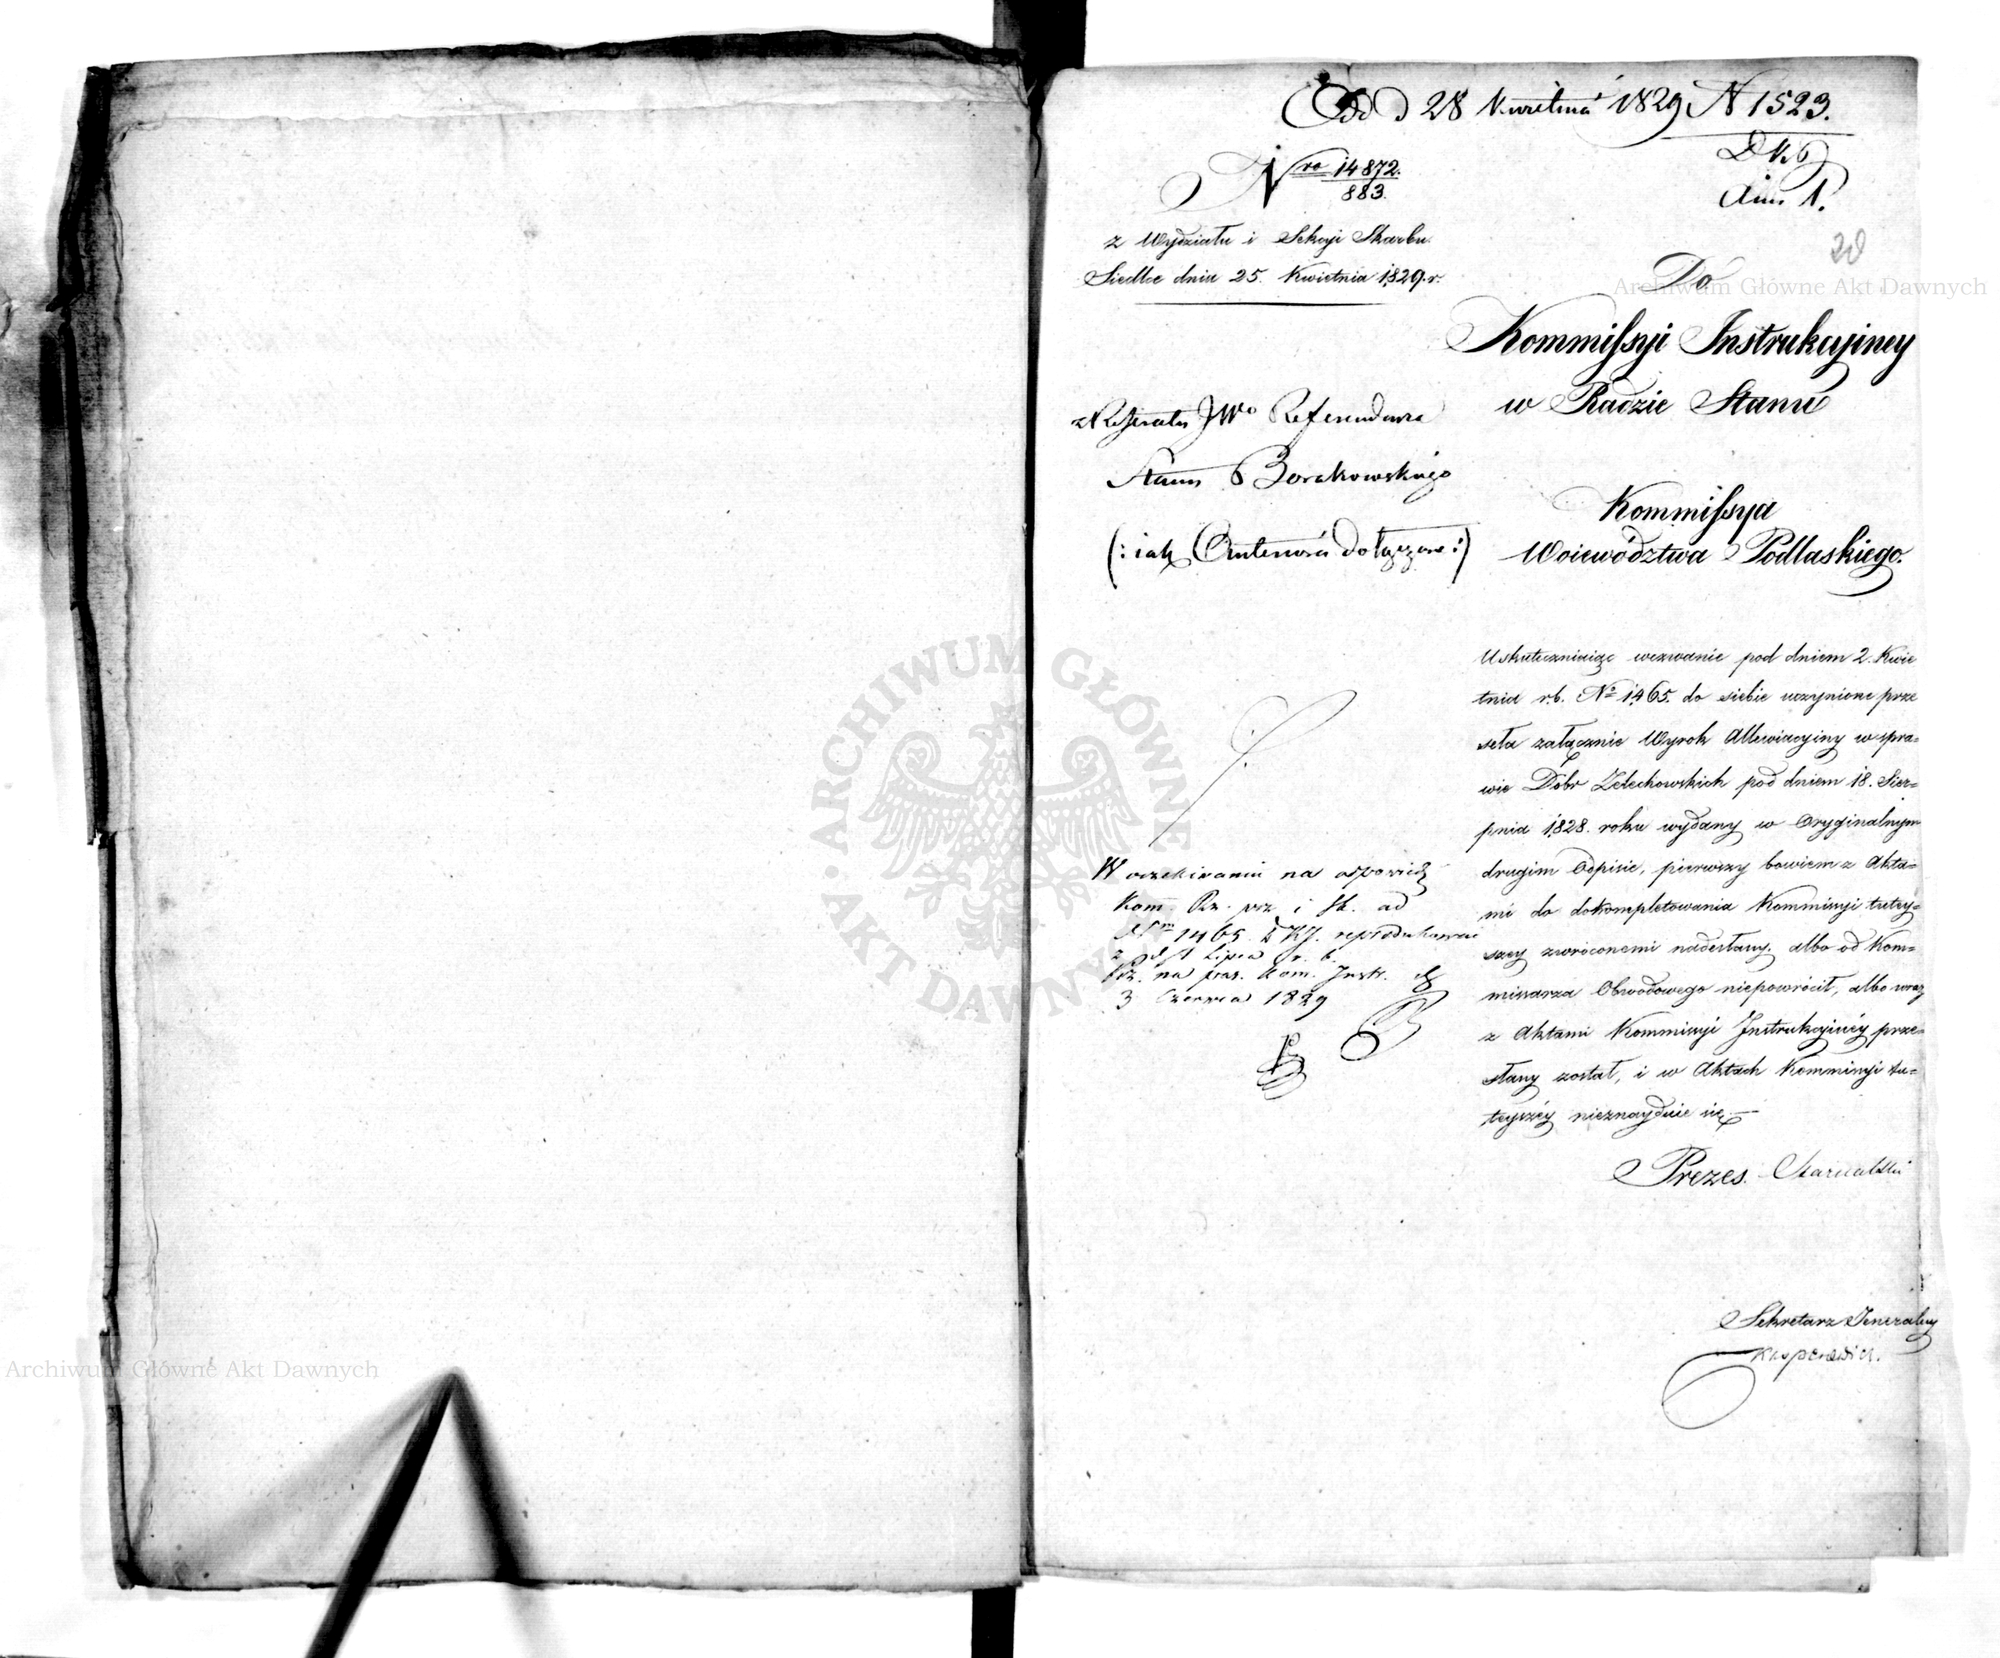 Odd d 28 Kwietnia 1829 N 1523.
DKJ
Ann 1.
Nro 14872.
883.
z Wydziału i Sekcyi Skarbu.
Siedlce dnia 25. Kwietnia 1829. r.
20
Do
Kommissyi Instrukcyiney
w Radzie Stanu
z Referatu JWo Referendarza
Stanu Borakowskiego
(: iak Anteriora dołączone :)
Kommissya
Woiewództwa Podlaskiego.
Uskuteczniaiąc wezwanie pod dniem 2. Kwie
tnia r.b. No 1465. do siebie uczynione prze
seła załącznie Wyrok Allewiacyiny w spra-
wie Dobr Zelechowskich pod dniem 18. Sier-
pnia 1828. roku wydany w Oryginalnym
drugim Odpisie, pierwszy bowiem z Akta-
mi do dokompletowania Kommissyi tutey-
szey zwróconemi nadesłany, albo od Kom-
missarza Obwodowego niepowrócił, albo wraz
z Aktami Kommissyi Instrukcyinéy prze-
słany został, i w Aktach Kommissyi tu-
teyszéy nieznayduie się.
Prezes.
W oczekiwaniu na odpowiedź
Kom. Rz. prz. i Sk. ad
Num 1465 DKJ. reprodukować
z d 1 Lipca r. b.
na pos. Kom. Instr.
3 Czerwca 1829
Sekretarz Jeneralny
ARCHIWUM GŁÓWNE AKT DAWNYCH
Archiwum Główne Akt Dawnych
Archiwum Główne Akt Dawnych